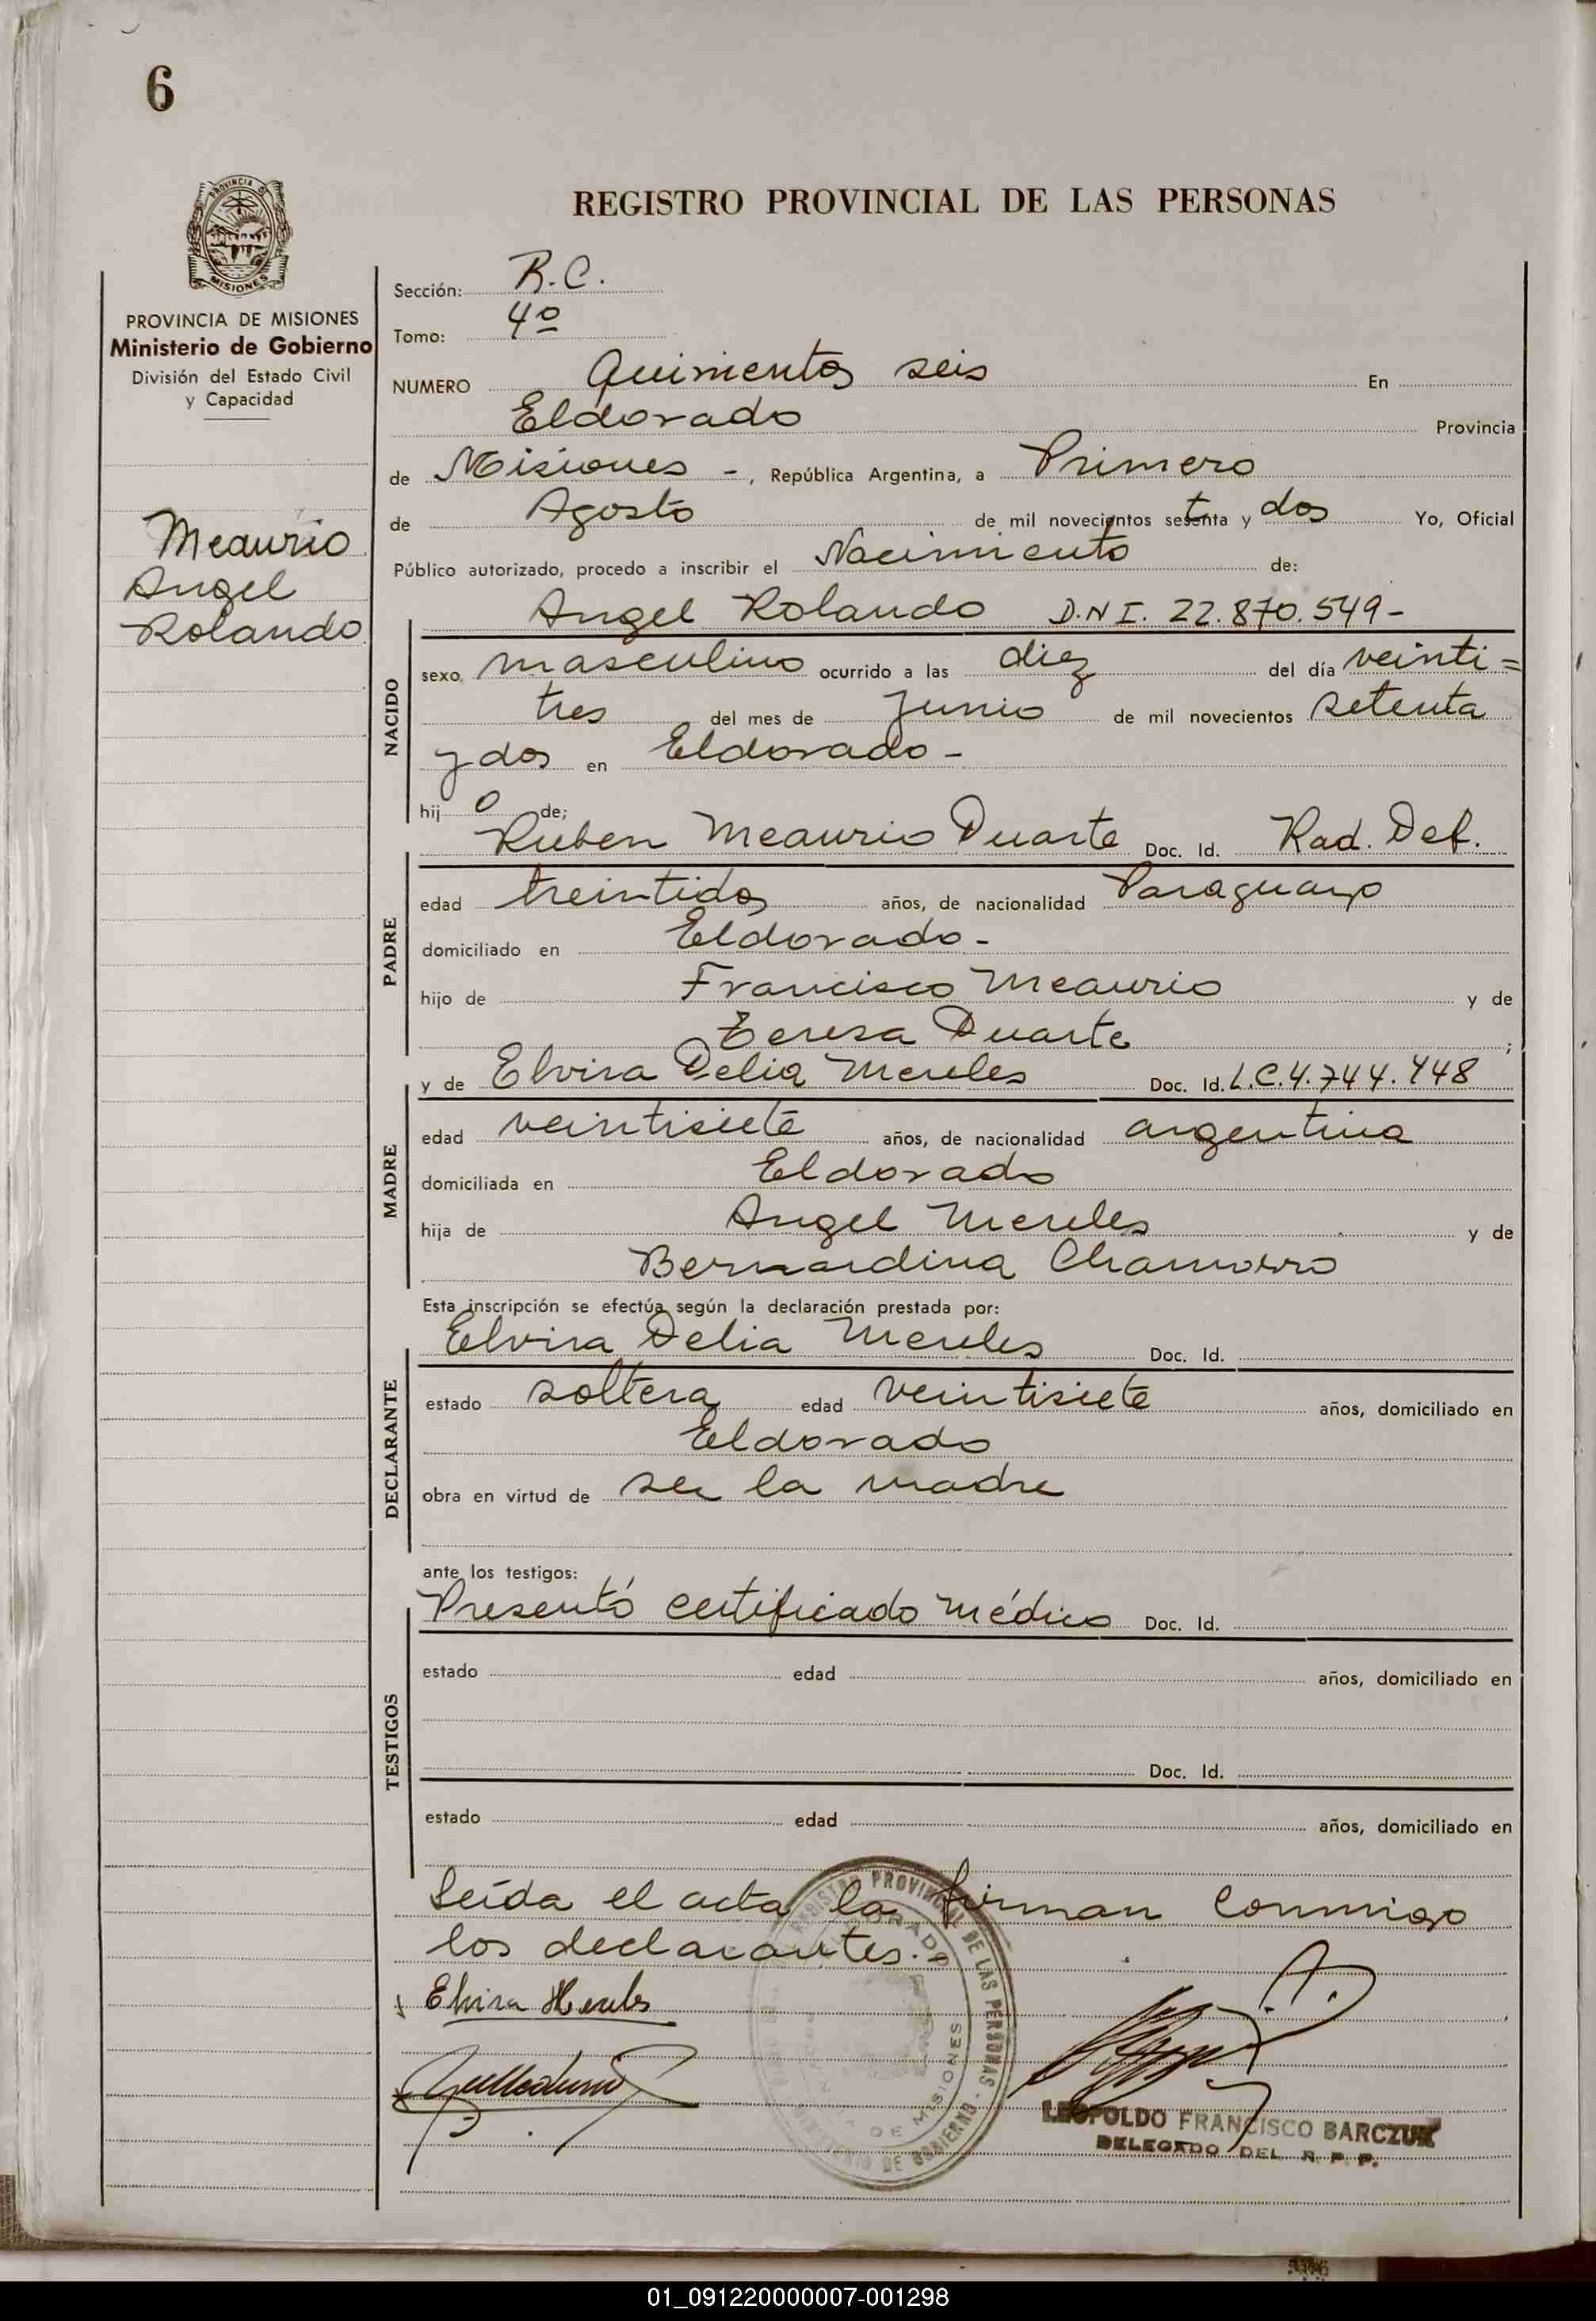 6
PROVINCIA D
MISIONES
REGISTRO PROVINCIAL DE LAS PERSONAS
PROVINCIA DE MISIONES
Ministerio de Gobierno
División del Estado Civil
y Capacidad
Meaurio
Angel
Rolando
Sección: R.C.
Tomo: 4º
NUMERO Quinientos seis En
Eldorado Provincia
de Misiones -, República Argentina, a Primero
de Agosto de mil novecientos setenta y dos Yo, Oficial
Público autorizado, procedo a inscribir el Nacimiento de:
Angel Rolando D.N.I. 22.870.549-
NACIDO
sexo masculino ocurrido a las diez del día veinti=
tres del mes de Junio de mil novecientos setenta
y dos en Eldorado -
hij o de;
Ruben Meaurio Duarte Doc. Id. Rad. Def.
PADRE
edad treintidos años, de nacionalidad Paraguayo
domiciliado en Eldorado -
hijo de Francisco Meaurio y de
Teresa Duarte ;
y de Elvira Delia Mereles Doc. Id. L.C.4.744.448
MADRE
edad veintisiete años, de nacionalidad argentina
domiciliada en Eldorado
hija de Angel Mereles y de
Bernardina Chamorro
Esta inscripción se efectúa según la declaración prestada por:
Elvira Delia Mereles Doc. Id.
DECLARANTE
estado soltera edad veintisiete años, domiciliado en
Eldorado
obra en virtud de ser la madre
ante los testigos:
Presentó certificado médico Doc. Id.
TESTIGOS
estado edad años, domiciliado en
Doc. Id.
estado edad años, domiciliado en
Leída el acta la firman conmigo
los declarantes.
Elvira Mereles
REGISTRO PROVINCIAL DE LAS PERSONAS - MINISTERIO DE GOBIERNO
DE MISIONES
LEOPOLDO FRANCISCO BARCZUK
DELEGADO DEL R. P. P.
01_091220000007-001298